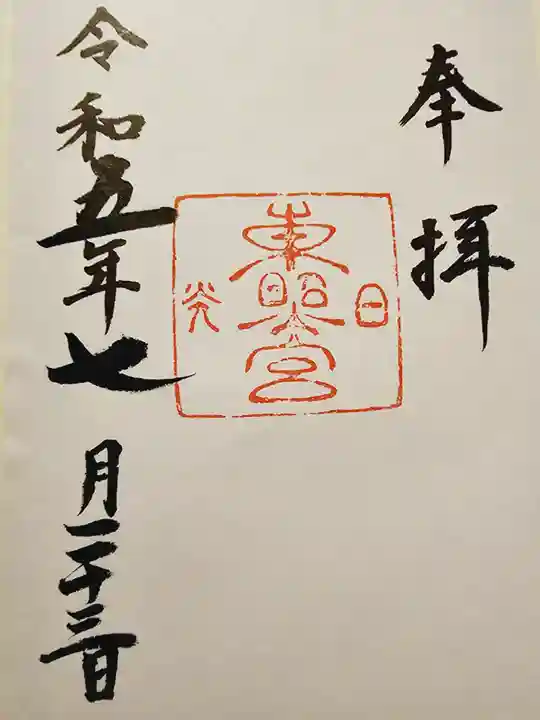 奉拝
日
東照宮
光
令和五年七月二十三日